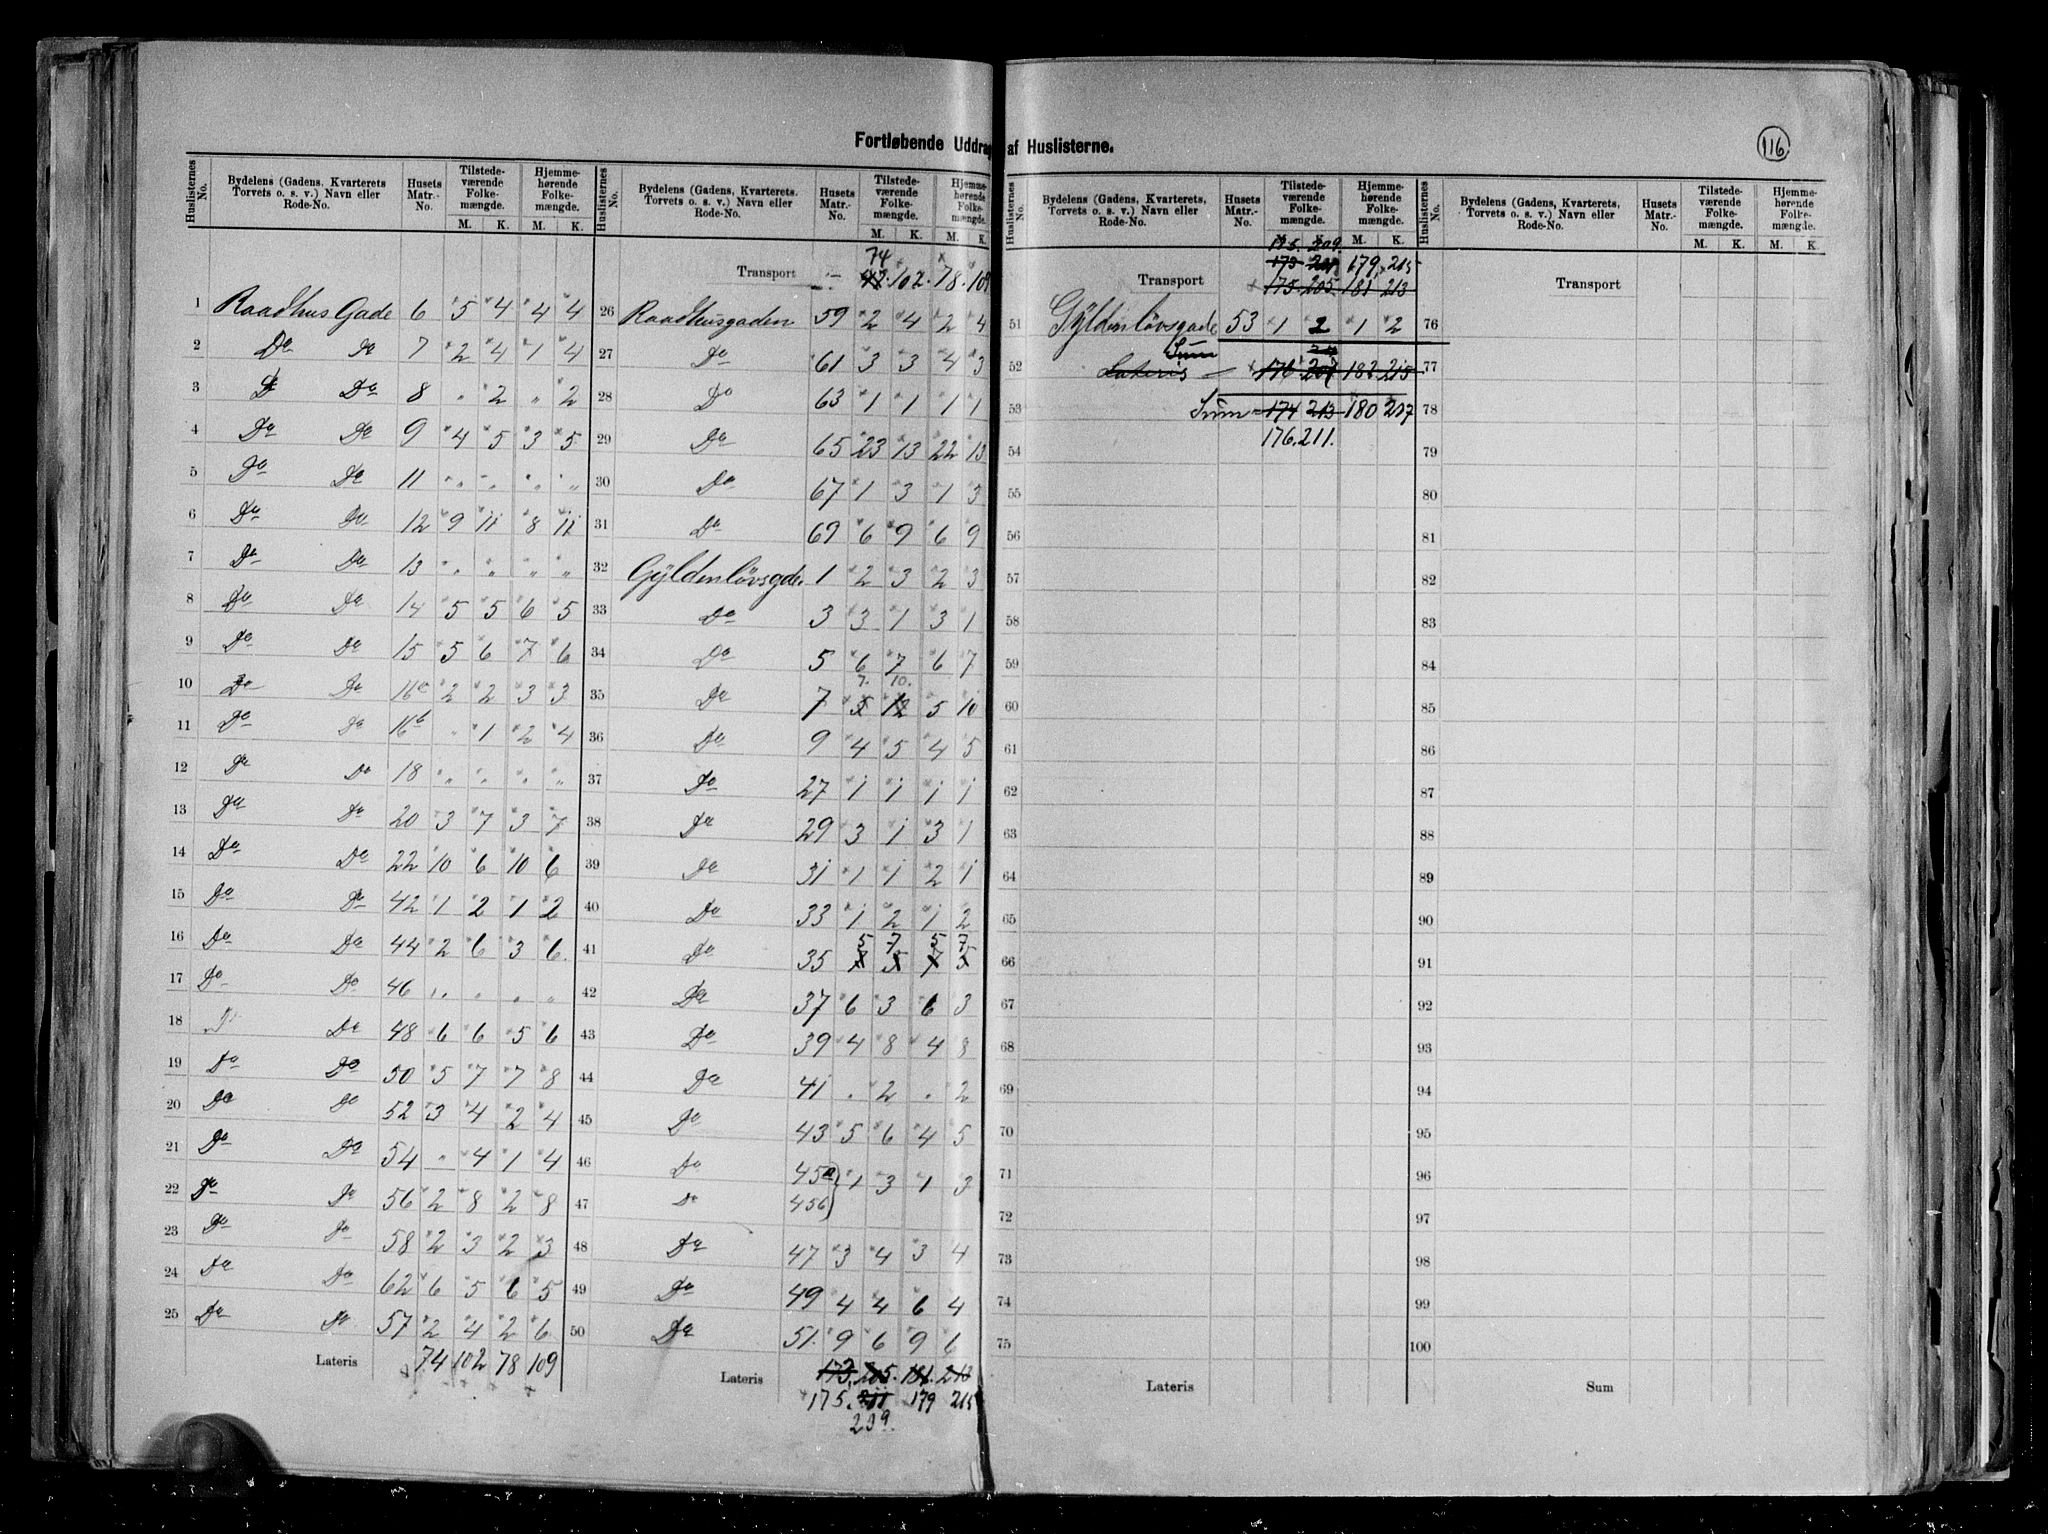 Fortløbende Uddrag af Huslisterne.
116
Huslisternes No. | Bydelens (Gadens, Kvarterets Torvets o. s. v.) Navn eller Rode-No. | Husets Matr.-No. | Tilstedeværende Folkemængde. M. K. | Hjemmehørende Folkemængde. M. K.
1 Raadhus Gade 6 5 4 4 4
2 Do Do 7 2 4 1 4
3 Do Do 8 „ 2 „ 2
4 Do Do 9 4 5 3 5
5 Do Do 11 „ „ „ „
6 Do Do 12 9 11 8 11
7 Do Do 13 „ „ „ „
8 Do Do 14 5 5 6 5
9 Do Do 15 5 6 7 6
10 Do Do 16a 2 2 3 3
11 Do Do 16b „ 1 2 4
12 Do Do 18 „ „ „ „
13 Do Do 20 3 7 3 7
14 Do Do 22 10 6 10 6
15 Do Do 42 1 2 1 2
16 Do Do 44 2 6 3 6
17 Do Do 46 „ „ „ „
18 Do Do 48 6 6 5 6
19 Do Do 50 5 7 7 8
20 Do Do 52 3 4 2 4
21 Do Do 54 „ 4 1 4
22 Do Do 56 2 8 2 8
23 Do Do 58 2 3 2 3
24 Do Do 62 6 5 6 5
25 Do Do 57 2 4 2 6
Lateris 74 102 78 109
Huslisternes No. | Bydelens (Gadens, Kvarterets. Torvets o. s. v.) Navn eller Rode-No. | Husets Matr.-No. | Tilstedeværende Folkemængde. M. K. | Hjemmehørende Folkemængde. M. K.
74
Transport 102. 78. 109
26 Raadhusgaden 59 2 4 2 4
27 Do 61 3 3 4 3
28 Do 63 1 1 1 1
29 Do 65 23 13 22 13
30 Do 67 1 3 1 3
31 Do 69 6 9 6 9
32 Gyldenløvsgde. 1 2 3 2 3
33 Do 3 3 1 3 1
34 Do 5 6 7 6 7
7. 10.
35 Do 7 5 12 5 10
36 Do 9 4 5 4 5
37 Do 27 1 1 1 1
38 Do 29 3 1 3 1
39 Do 31 1 1 2 1
40 Do 33 1 2 1 2
5 7 5 7
41 Do 35 7 5 7 5
42 Do 37 6 3 6 3
43 Do 39 4 8 4 8
44 Do 41 „ 2 „ 2
45 Do 43 5 6 4 5
46 Do 45a 1 3 1 3
47 Do 45b
48 Do 47 3 4 3 4
49 Do 49 4 4 6 4
50 Do 51. 9 6 9 6
Lateris 173. 205. 181. 213
175. 211 179 215
209.
Huslisternes No. | Bydelens (Gadens, Kvarterets, Torvets o. s. v.) Navn eller Rode-No. | Husets Matr.-No. | Tilstedeværende Folkemængde. M. K. | Hjemmehørende Folkemængde. M. K.
175. 209.
173 211 179, 215
Transport 175. 205. 181 213
51 Gyldenløvsgade 53 1 2 1 2
Sum
52 Lateris 176 207 182 215
53 Sum 174 213 180 217
176. 211.
54
55
56
57
58
59
60
61
62
63
64
65
66
67
68
69
70
71
72
73
74
75
Lateris
Huslisternes No. | Bydelens (Gadens, Kvarterets, Torvets o. s. v.) Navn eller Rode-No. | Husets Matr.-No. | Tilstedeværende Folkemængde. M. K. | Hjemmehørende Folkemængde. M. K.
Transport
76
77
78
79
80
81
82
83
84
85
86
87
88
89
90
91
92
93
94
95
96
97
98
99
100
Sum